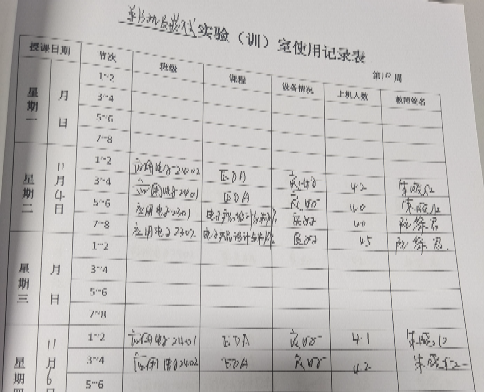 单片机及嵌入式实验（训）室使用记录表
第10周
授课日期 节次 班级 课程 设备情况 上机人数 教师签名
星期一 月 日 1~2
3~4
5~6
7~8
星期二 11月4日 1~2 应用电子2402 EDA 良好 42
3~4 应用电子2401 EDA 良好 40
5~6 应用电子2301 良好 40
7~8 应用电子2302 电子产品设计与制作 良好 45
星期三 月 日 1~2
3~4
5~6
7~8
星期四 11月6日 1~2 应用电子2401 EDA 良好 41
3~4 应用电子2402 EDA 良好 42
5~6